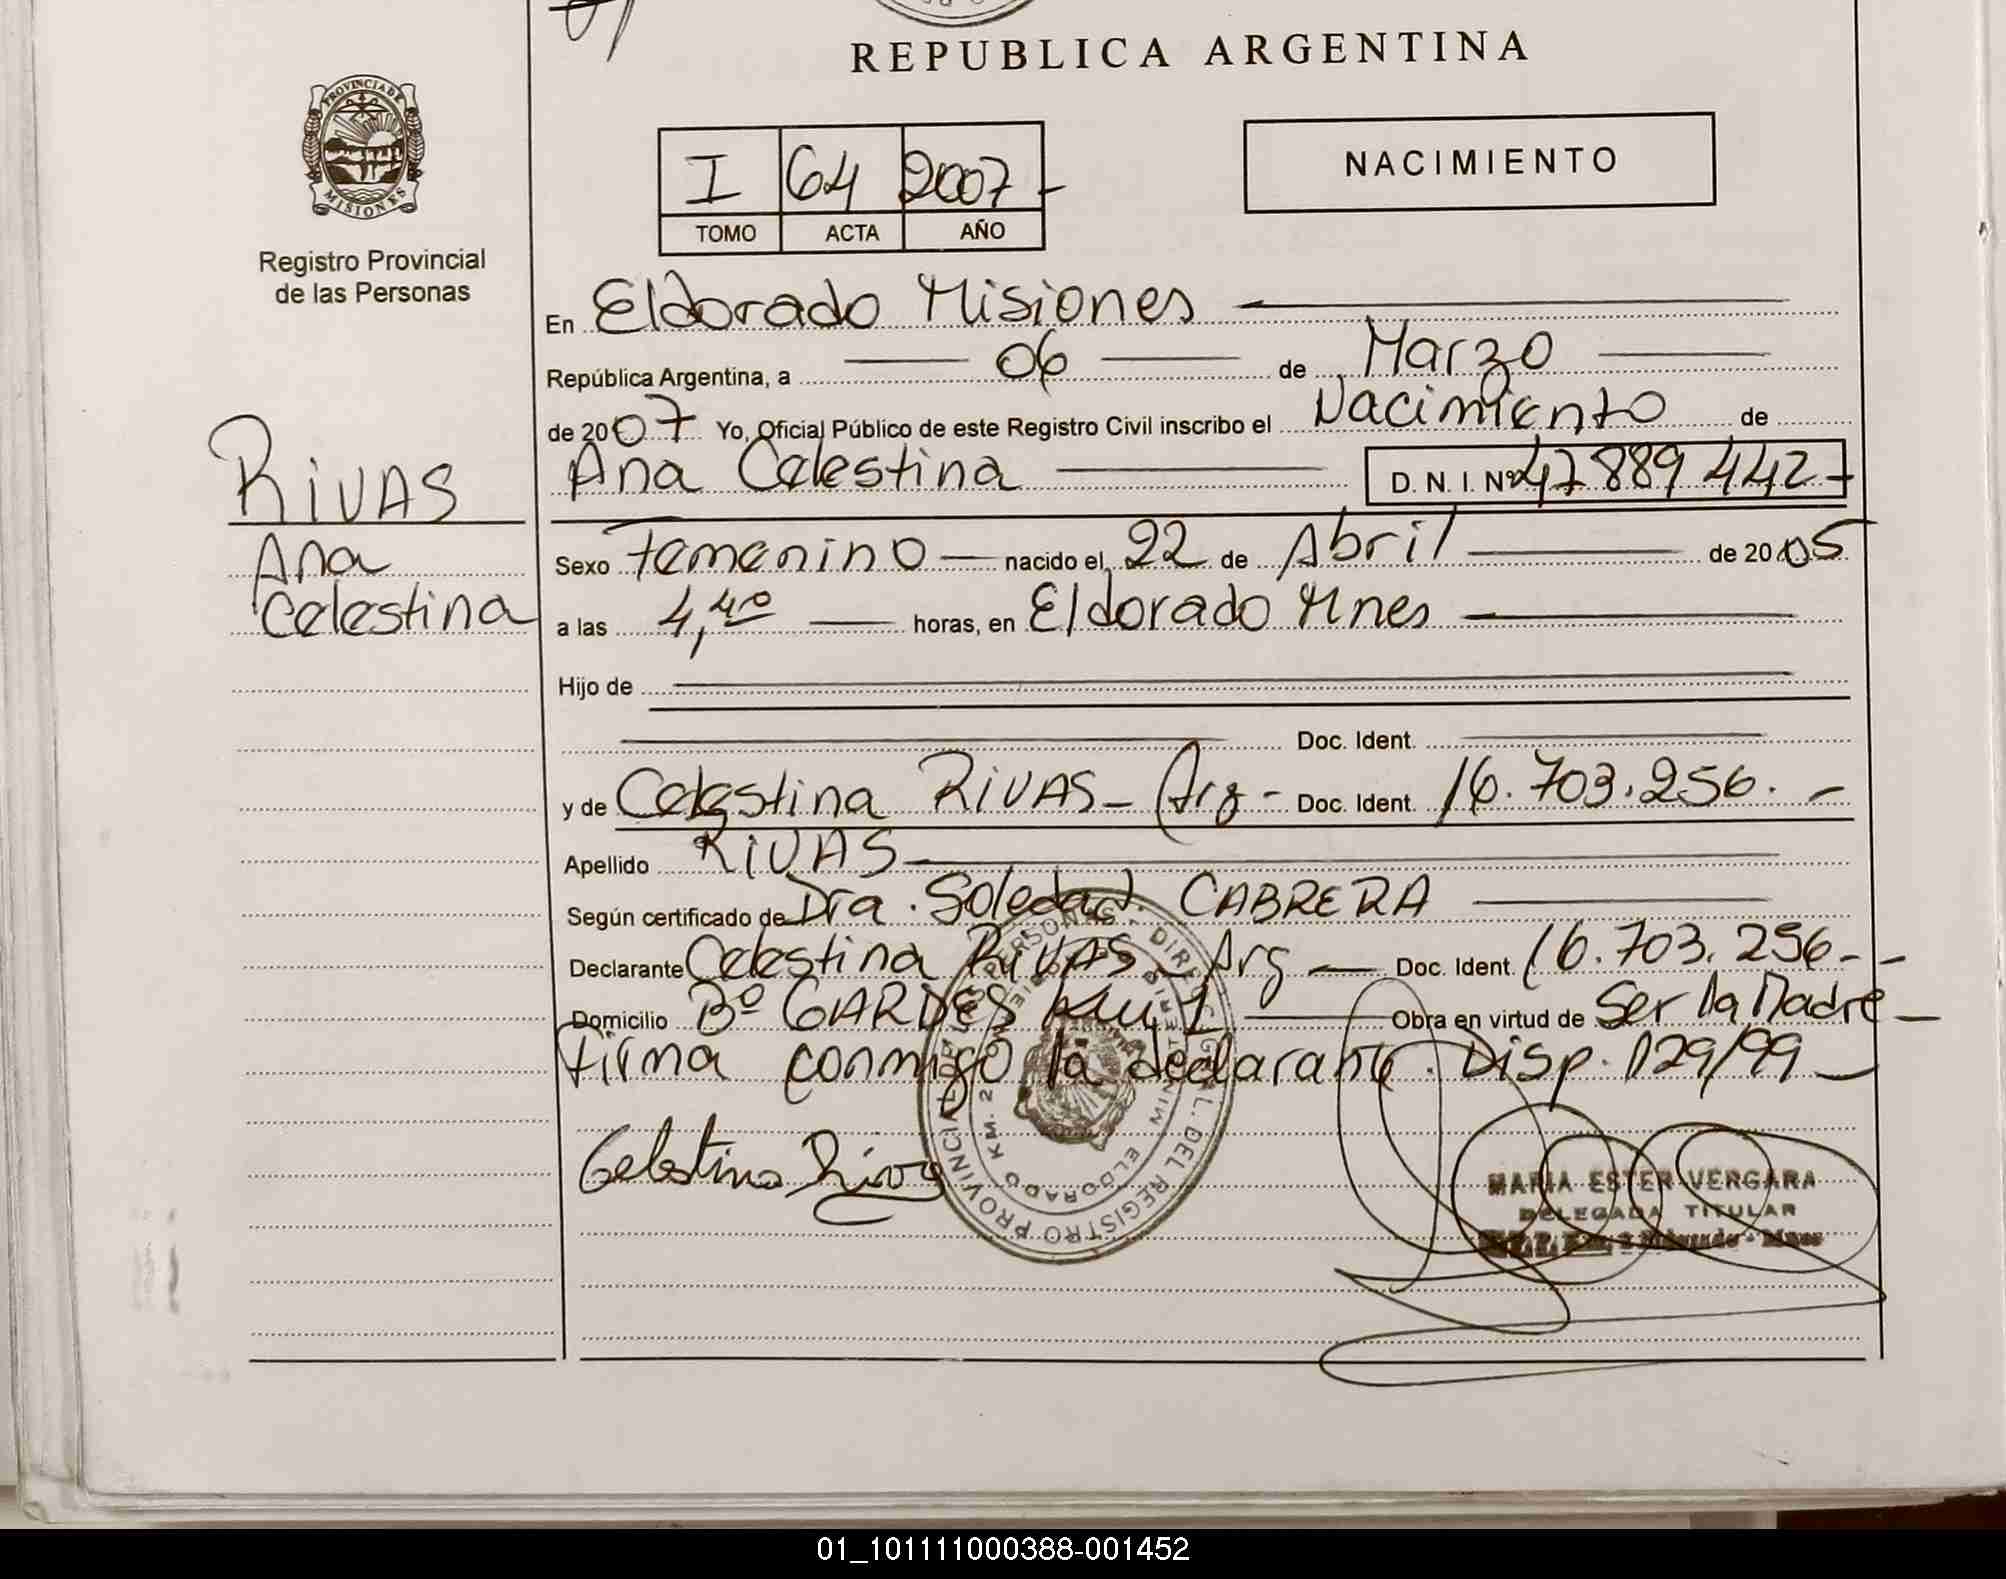 REPUBLICA ARGENTINA
PROVINCIA DE MISIONES
Registro Provincial
de las Personas
I 64 2007-
TOMO ACTA AÑO
NACIMIENTO
En Eldorado Misiones
República Argentina, a 06 de Marzo
de 2007 Yo, Oficial Público de este Registro Civil inscribo el Nacimiento de
Ana Celestina D. N. I. Nº 47 889 442-
RIVAS
Ana
Celestina
Sexo Femenino nacido el 22 de Abril de 2005
a las 4,40 horas, en Eldorado Mnes
Hijo de
Doc. Ident.
y de Celestina RIVAS - Arg - Doc. Ident. 16.703.256. -
Apellido RIVAS
Según certificado de Dra. Soledad CABRERA
Declarante Celestina RIVAS - Arg - Doc. Ident. 16.703.256--
Domicilio Bº GARDES Km 1 Obra en virtud de Ser la Madre -
Firma conmigo la declarante. Disp. 129/99
Celestina Rivas
MARIA ESTER VERGARA
DELEGADA TITULAR
2 Eldorado - Mnes
ELDORADO KM. 2
01_101111000388-001452